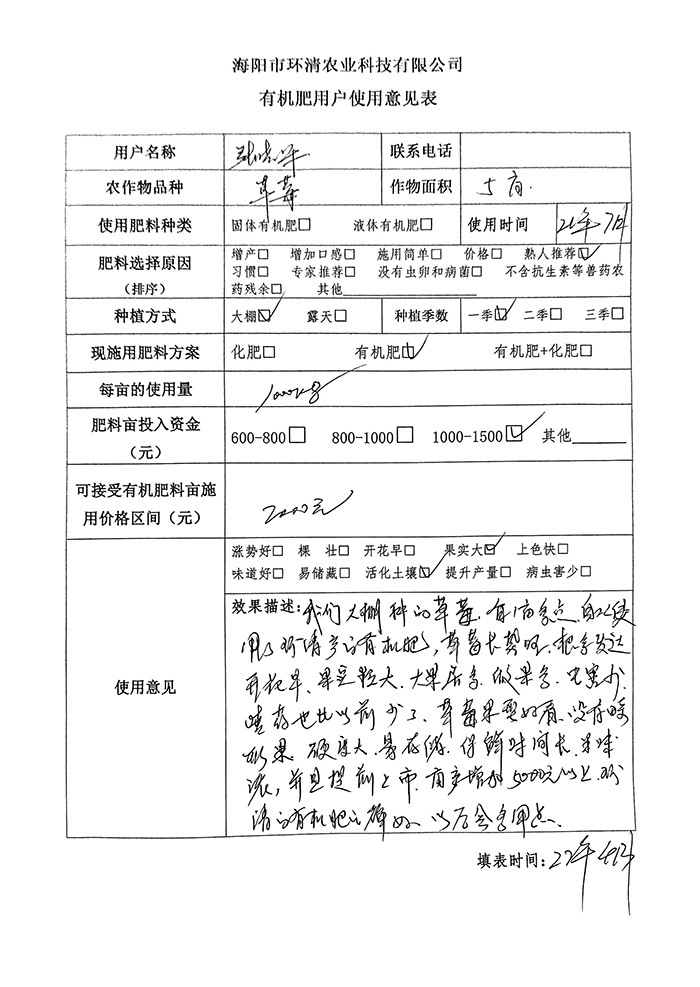 海阳市环清农业科技有限公司
有机肥用户使用意见表
用户名称 联系电话
农作物品种 草莓 作物面积 5亩.
使用肥料种类 固体有机肥□ 液体有机肥□ 使用时间 21年7月
肥料选择原因（排序） 增产□ 增加口感□ 施用简单□ 价格□ 熟人推荐☑
习惯□ 专家推荐□ 没有虫卵和病菌□ 不含抗生素等兽药农
药残余□ 其他
种植方式 大棚☑ 露天□ 种植季数 一季☑ 二季□ 三季□
现施用肥料方案 化肥□ 有机肥☑ 有机肥+化肥□
每亩的使用量 1000kg
肥料亩投入资金（元） 600-800□ 800-1000□ 1000-1500☑ 其他
可接受有机肥料亩施用价格区间（元） 2000元
使用意见 涨势好□ 棵 壮□ 开花早□ 果实大☑ 上色快□
味道好□ 易储藏□ 活化土壤☑ 提升产量□ 病虫害少□
效果描述:我们大棚种的草莓.有
用了环清产的有机肥,草莓长势旺.根系发达
开花早、果实粒大.大果居多.
药也比以前少了、草莓果型好看、没有
果.硬度大.易存储.保鲜时间长.
浓,并且提前上市.亩产增加5000元以上.环
清的有机肥 以后会多用点.
填表时间:22年4月